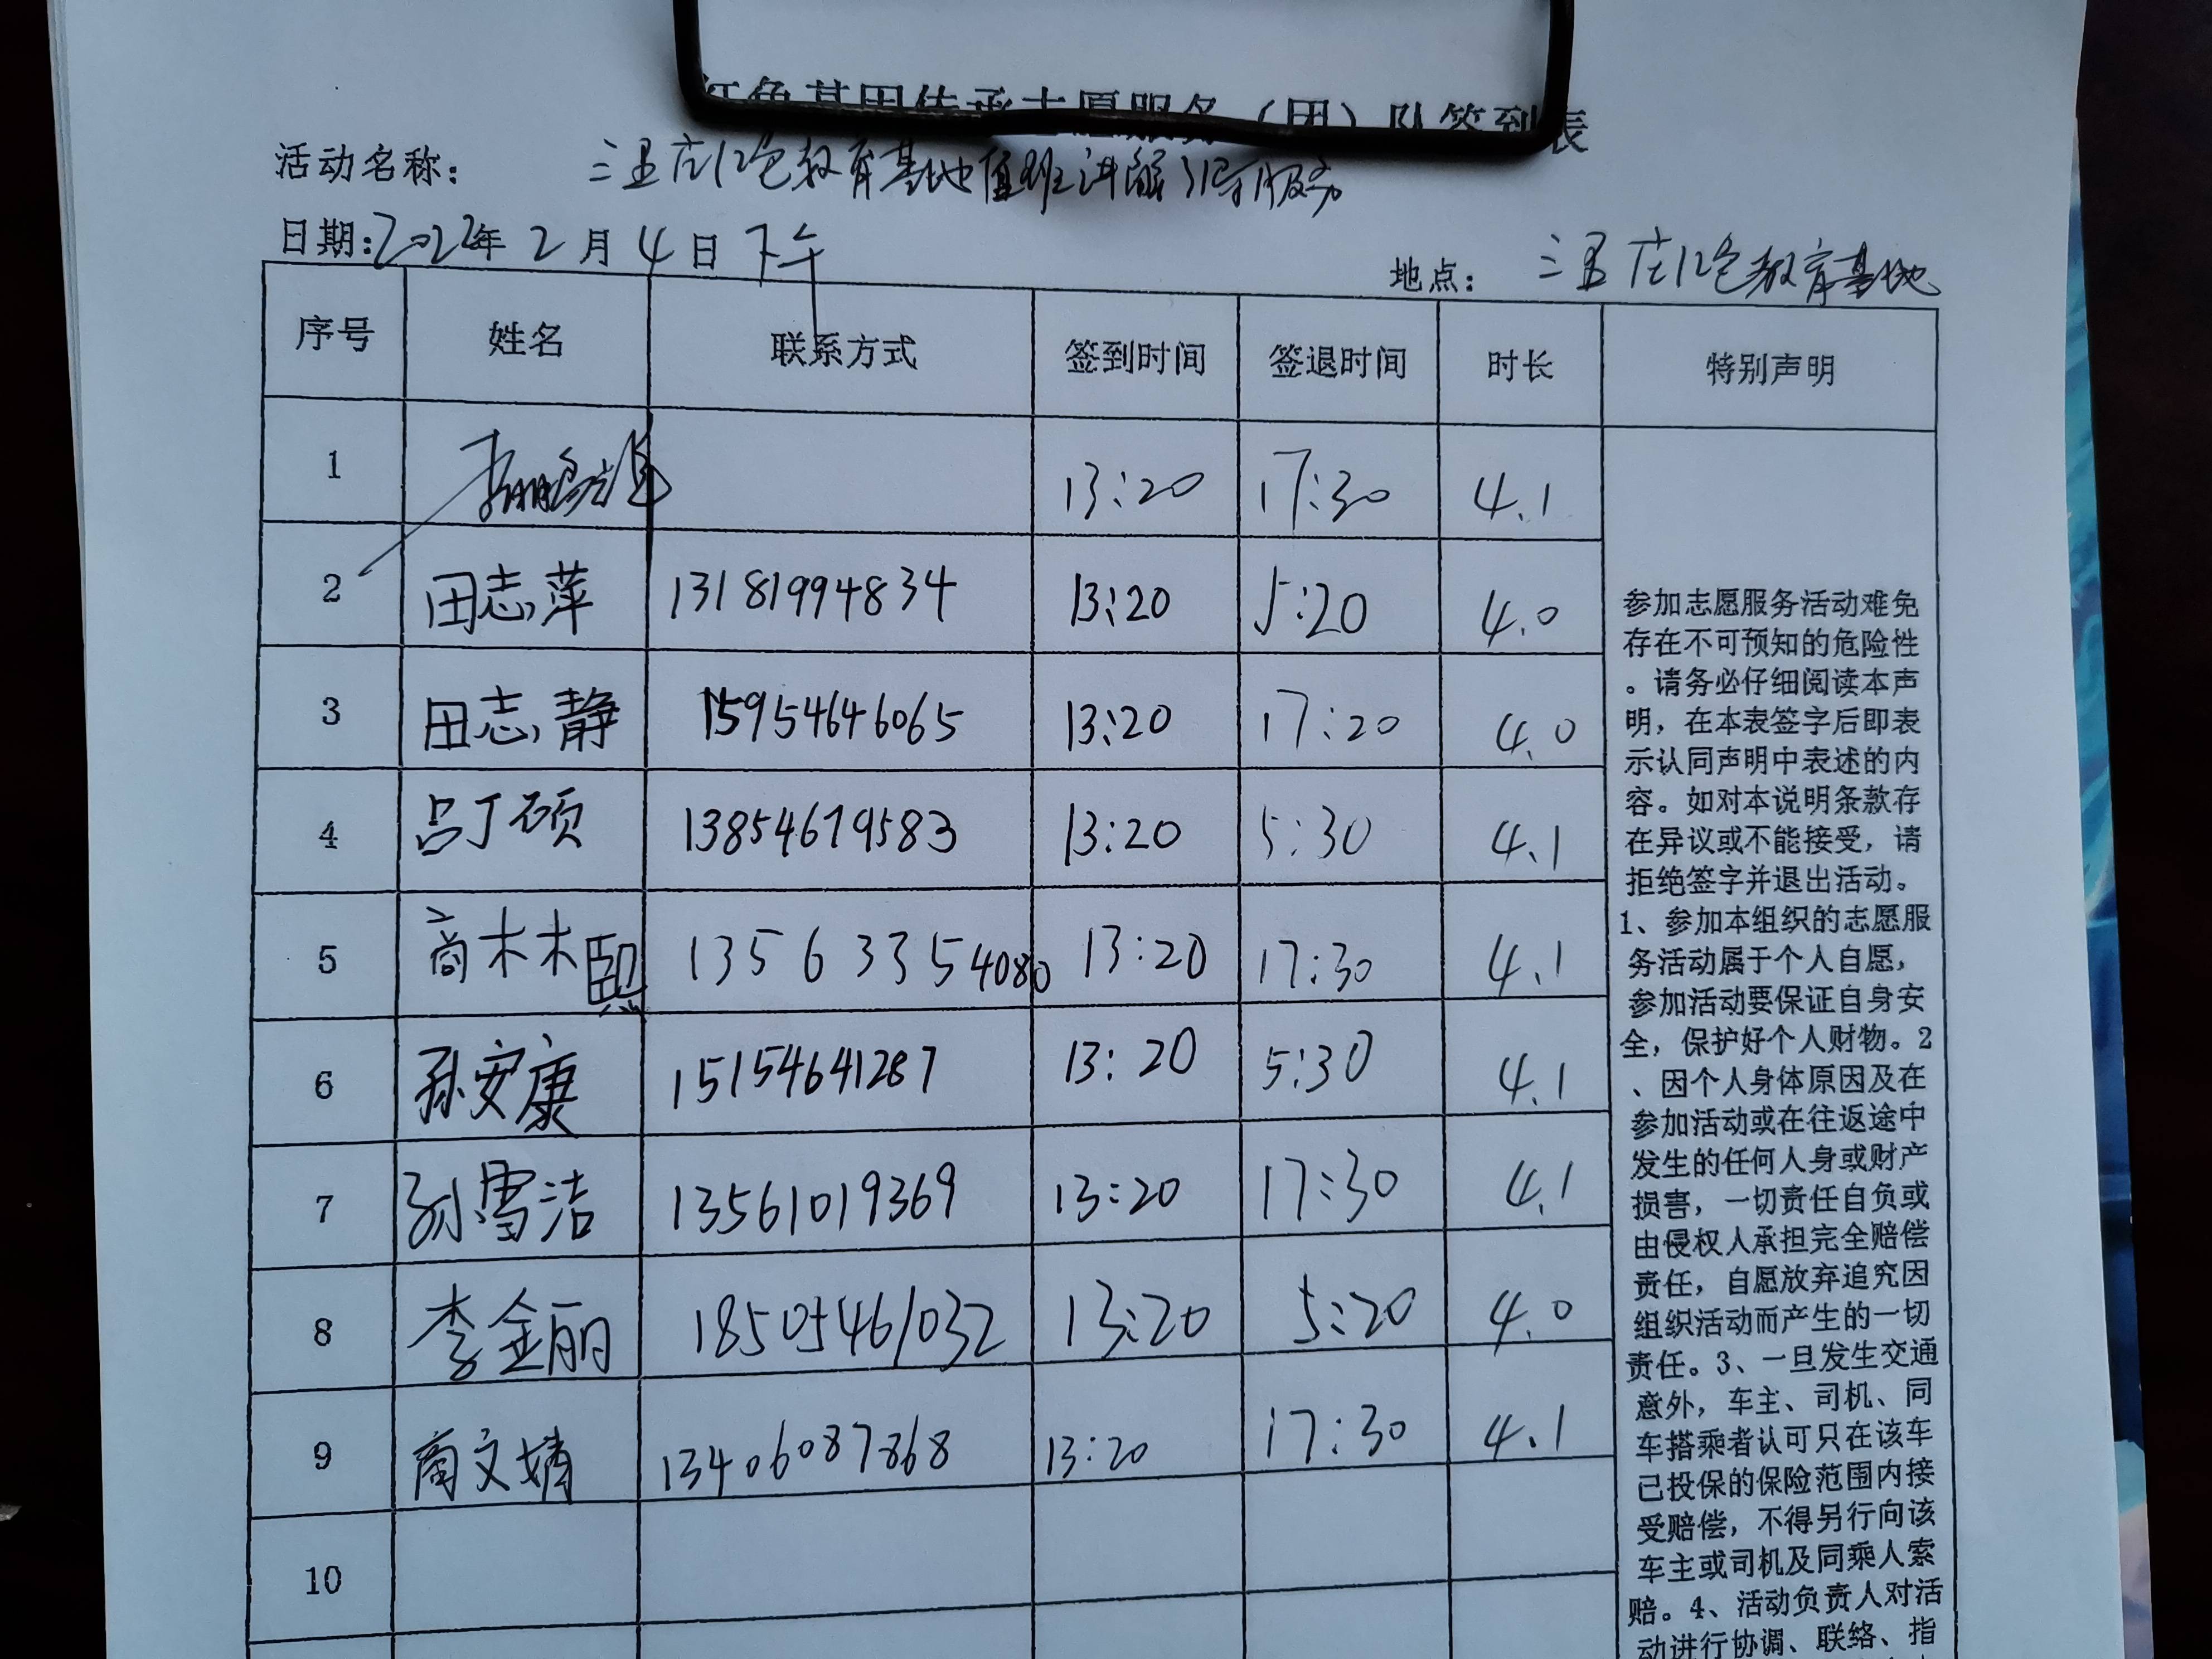 红色基因传承志愿服务（团）队签到表
活动名称： 三里庄红色教育基地值班讲解引导服务
日期:2022年2月4日下午 地点： 三里庄红色教育基地
序号 姓名 联系方式 签到时间 签退时间 时长 特别声明
1 13:20 17:30 4.1
2 田志萍 13181994834 13:20 5:20 4.0
3 田志静 15954646065 13:20 17:20 4.0
4 吕丁硕 13854679583 13:20 5:30 4.1
5 商木木熙 13563354080 13:20 17:30 4.1
6 孙安康 15154641287 13:20 5:30 4.1
7 孙雪洁 13561019369 13:20 17:30 4.1
8 李金丽 18505461032 13:20 5:20 4.0
9 商文婧 13406087868 13:20 17:30 4.1
10
参加志愿服务活动难免
存在不可预知的危险性
。请务必仔细阅读本声
明，在本表签字后即表
示认同声明中表述的内
容。如对本说明条款存
在异议或不能接受，请
拒绝签字并退出活动。
1、参加本组织的志愿服
务活动属于个人自愿，
参加活动要保证自身安
全，保护好个人财物。2
、因个人身体原因及在
参加活动或在往返途中
发生的任何人身或财产
损害，一切责任自负或
由侵权人承担完全赔偿
责任，自愿放弃追究因
组织活动而产生的一切
责任。3、一旦发生交通
意外，车主、司机、同
车搭乘者认可只在该车
已投保的保险范围内接
受赔偿，不得另行向该
车主或司机及同乘人索
赔。4、活动负责人对活
动进行协调、联络、指